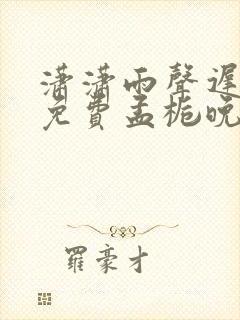 瀟瀟雨聲遲
免費孟梔晚
羅豪才